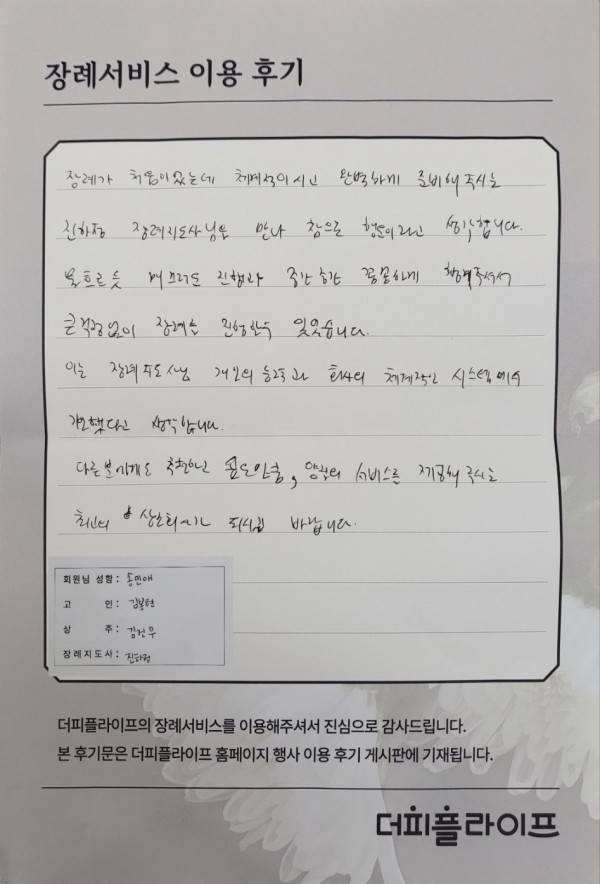 장례서비스 이용 후기
장례가 처음이었는데 체계적이시고 완벽하게 준비해 주시는
진하정 장례지도사님을 만나 참으로 행운이라고 생각합니다.
물흐르듯 매끄러운 진행과 중간중간 꼼꼼하게 챙겨주셔서
큰 걱정없이 장례를 진행할수 있었습니다.
이는 장례지도사님 개인의 능력과 회사의 체계적인 시스템에서
생각합니다.
다른분에게도 추천하고 싶은만큼, 양질의 서비스를 제공해 주시는
최고의 상조회사가 되시길 바랍니다.
회원님 성함: 송민애
고 인: 김봉현
상 주: 김건우
장례지도사: 진하정
더피플라이프의 장례서비스를 이용해주셔서 진심으로 감사드립니다.
본 후기문은 더피플라이프 홈페이지 행사 이용 후기 게시판에 기재됩니다.
더피플라이프